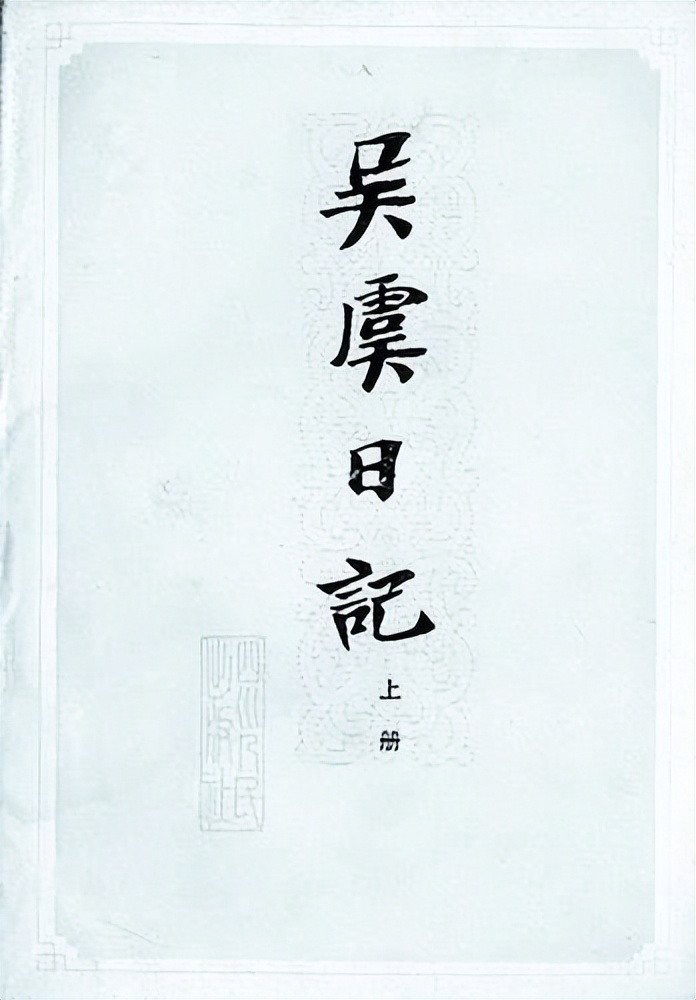 吴虞日記
上册